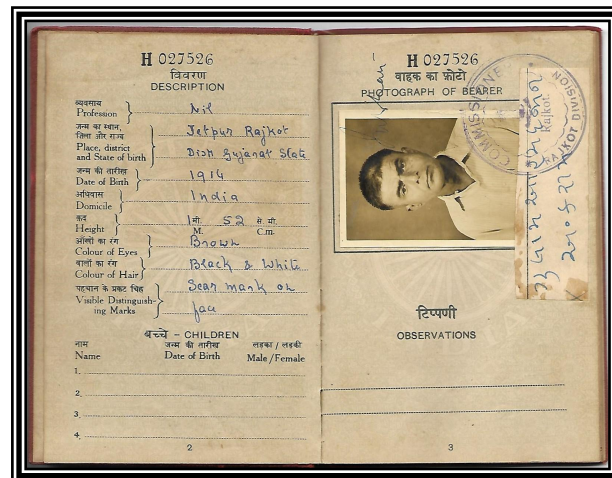 H 027526
विवरण
DESCRIPTION
व्यवसाय
Profession Nil
जन्म का स्थान,
जिला और राज्य
Place, district
and State of birth
Jetpur Rajkot
Dist Gujarat State
जन्म की तारीख
Date of Birth 1914
अधिवास
Domicile India
क़द
Height 1 मी. 52 से. मी.
M. C.m.
आँखों का रंग
Colour of Eyes Brown
बालों का रंग
Colour of Hair Black & White
पहचान के प्रकट चिह्न
Visible Distinguish-
ing Marks
Scar mark on
face
बच्चे – CHILDREN
नाम जन्म की तारीख लड़का / लड़की
Name Date of Birth Male / Female
1.
2.
3.
4.
2
H 027526
वाहक का फ़ोटो
PHOTOGRAPH OF BEARER
COMMISSIONER
Rajkot.
RAJKOT DIVISION
टिप्पणी
OBSERVATIONS
3